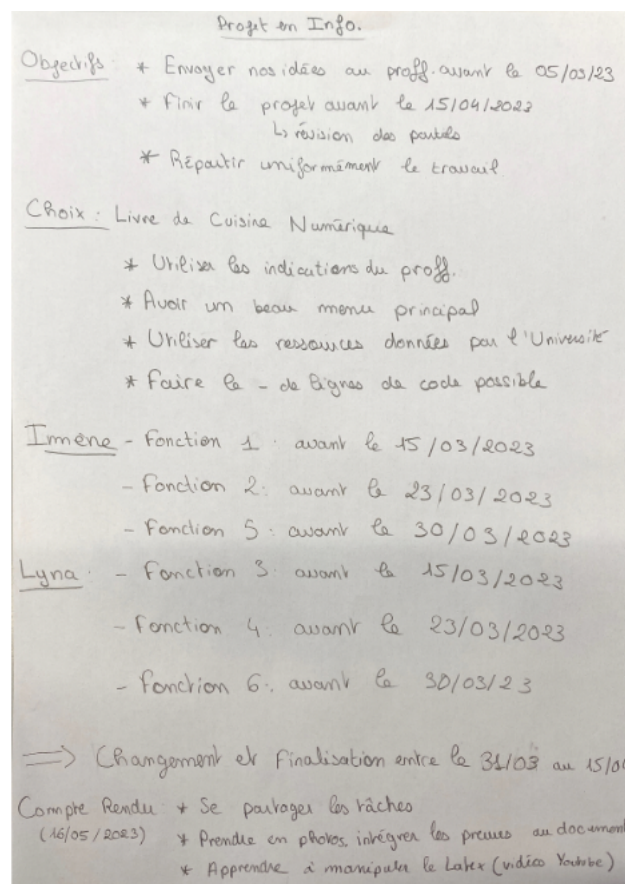 Projet en Info.
Objectifs : * Envoyer nos idées au proff. avant le 05/03/23
* Finir le projet avant le 15/04/2023
↳ révision des partiels
* Répartir uniformément le travail
Choix : Livre de Cuisine Numérique
* Utiliser les indications du proff.
* Avoir un beau menu principal
* Utiliser les ressources données par l'Université
* Faire le - de lignes de code possible
Imène - Fonction 1 : avant le 15/03/2023
- Fonction 2 : avant le 23/03/2023
- Fonction 5 : avant le 30/03/2023
Lyna : - Fonction 3 : avant le 15/03/2023
- Fonction 4 : avant le 23/03/2023
- Fonction 6 : avant le 30/03/23
⇒ Changement et Finalisation entre le 31/03 au 15/0
Compte Rendu * Se partager les tâches
(16/05/2023) * Prendre en photos, intégrer les preuves au document
* Apprendre à manipuler le Latex (vidéo Youtube)